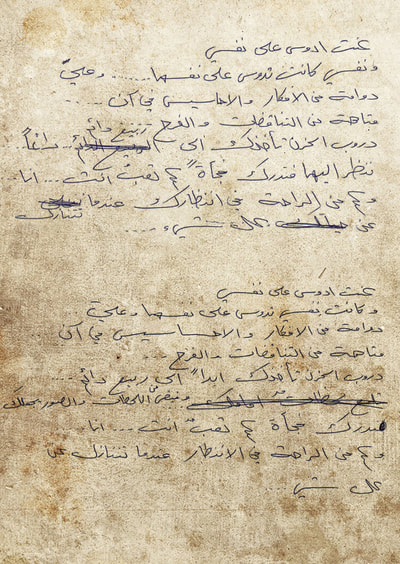 كنت ادوس على نفسي
و نفسي كانت تدوس على نفسها...... وعليّ
دوامة من الافكار والاحاسيس في آن ...
متاهة من التناقضات والفرح
دروب الحزن تأخذك الى ربيع دائم... دائماً
ننظر اليها فندرك فجأة كم تعبت انت... انا
وكم هي الراحة في انتظارك عندما تتنازل
عن كل شيء...
كنت ادوس على نفسي
و كانت نفسي تدوس على نفسها وعليّ
دوامة من الافكار والاحساسيس في آن
متاهة من التناقضات والفرح...
دروب الحزن تأخذك ابداً الى ربيع دائم....
اللحظات والصور
فتدرك فجأة كم تعبت انت... انا....
وكم هي الراحة في الانتظار عندما تتنازل عن
كل شيء...